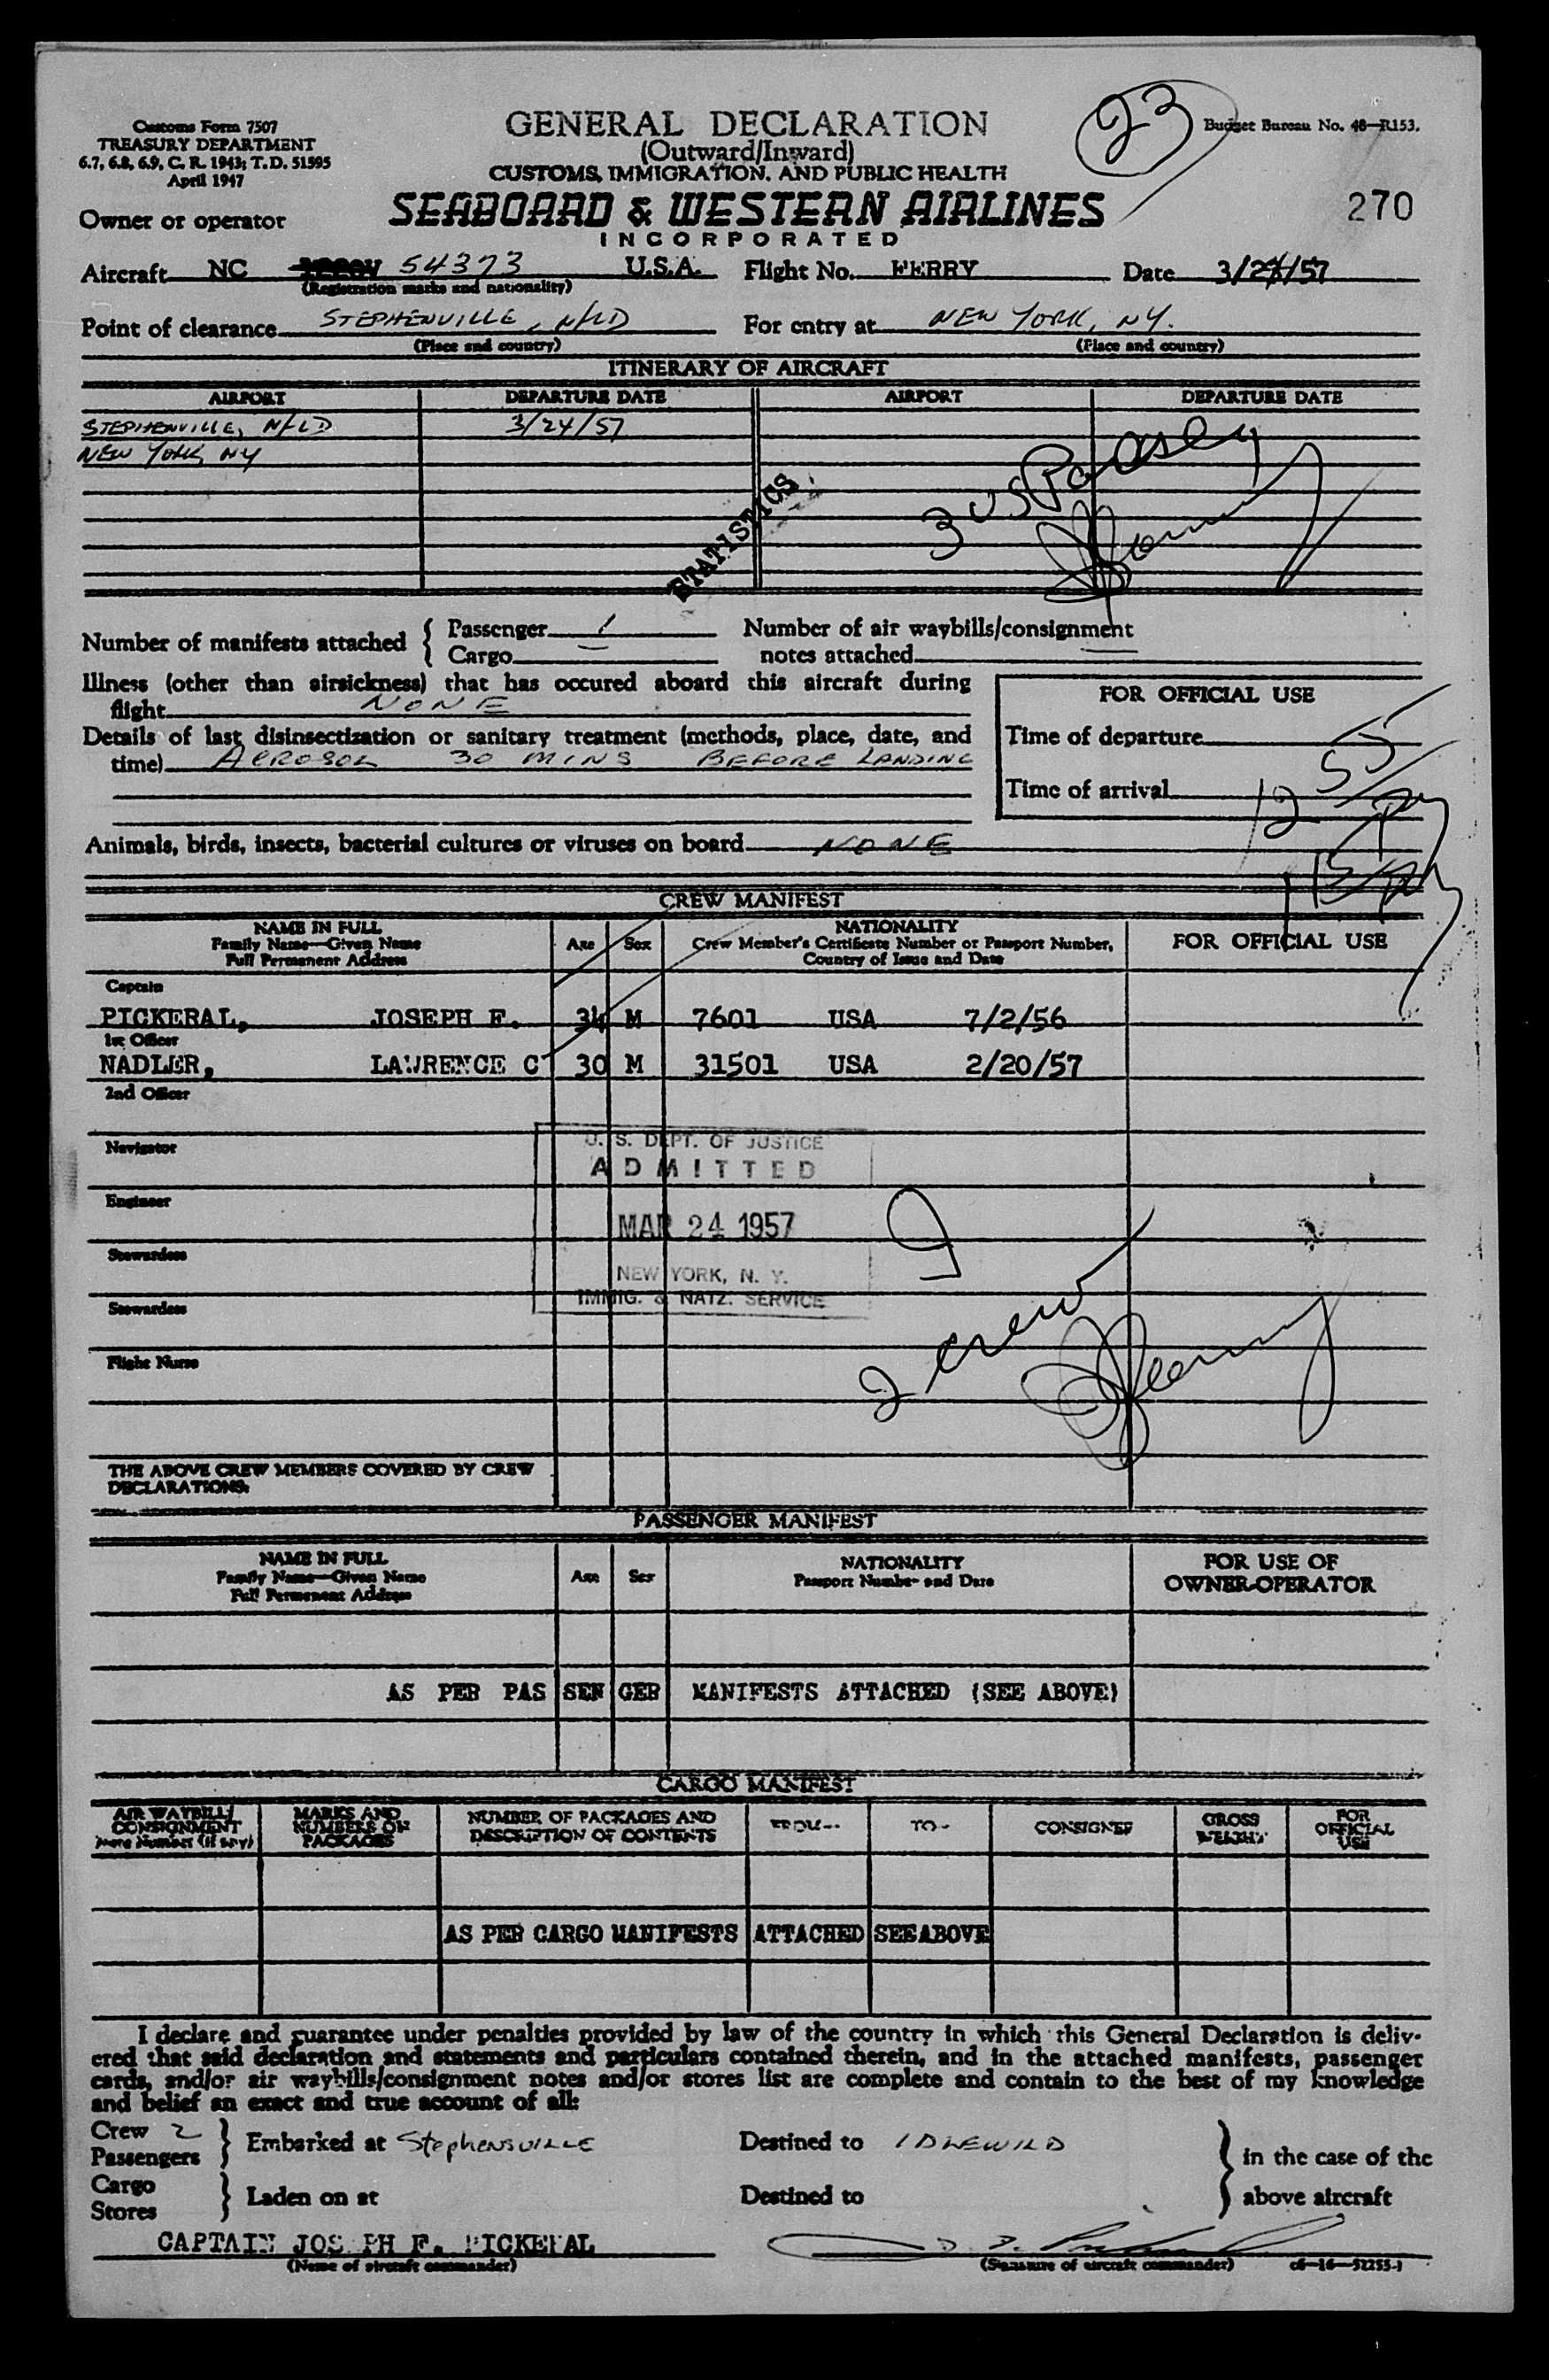 Customs Form 7507
TREASURY DEPARTMENT
6.7, 6.8, 6.9, C. R. 1943; T. D. 51595
April 1947
GENERAL DECLARATION
(Outward/Inward)
CUSTOMS, IMMIGRATION, AND PUBLIC HEALTH
23
Budget Bureau No. 48—R153.
Owner or operator
SEABOARD & WESTERN AIRLINES
INCORPORATED
270
Aircraft NC 54373 U.S.A. Flight No. FERRY Date 3/24/57
(Registration marks and nationality)
Point of clearance STEPHENVILLE, NFLD For entry at NEW YORK, NY.
(Place and country) (Place and country)
ITINERARY OF AIRCRAFT
AIRPORT DEPARTURE DATE AIRPORT DEPARTURE DATE
STEPHENVILLE, NFLD 3/24/57
NEW YORK, NY
STATISTICS
3 US
Number of manifests attached { Passenger 1 Number of air waybills/consignment
Cargo — notes attached —
Illness (other than airsickness) that has occured aboard this aircraft during
flight NONE
FOR OFFICIAL USE
Details of last disinsectization or sanitary treatment (methods, place, date, and
time) AEROSOL 30 MINS BEFORE LANDING
Time of departure
Time of arrival 12 55
Animals, birds, insects, bacterial cultures or viruses on board NONE
CREW MANIFEST
NAME IN FULL
Family Name—Given Name
Full Permanent Address
Age Sex
NATIONALITY
Crew Member's Certificate Number or Passport Number,
Country of Issue and Date
FOR OFFICIAL USE
Captain
PICKERAL, JOSEPH F. 34 M 7601 USA 7/2/56
1st Officer
NADLER, LAWRENCE C 30 M 31501 USA 2/20/57
2nd Officer
Navigator
U. S. DEPT. OF JUSTICE
ADMITTED
Engineer
MAR 24 1957
Stewardess
NEW YORK, N. Y.
Stewardess
IMMIG. & NATZ. SERVICE
Flight Nurse
2 crew
THE ABOVE CREW MEMBERS COVERED BY CREW
DECLARATIONS.
PASSENGER MANIFEST
NAME IN FULL
Family Name—Given Name
Full Permanent Address
Age Sex
NATIONALITY
Passport Number and Date
FOR USE OF
OWNER-OPERATOR
AS PER PAS SEN GER MANIFESTS ATTACHED (SEE ABOVE)
CARGO MANIFEST
AIR WAYBILL/
CONSIGNMENT
Note Number (if any)
MARKS AND
NUMBERS ON
PACKAGES
NUMBER OF PACKAGES AND
DESCRIPTION OF CONTENTS
FROM—
TO—
CONSIGNEE
GROSS
WEIGHT
FOR
OFFICIAL
USE
AS PER CARGO MANIFESTS ATTACHED SEE ABOVE
I declare and guarantee under penalties provided by law of the country in which this General Declaration is deliv-
ered that said declaration and statements and particulars contained therein, and in the attached manifests, passenger
cards, and/or air waybills/consignment notes and/or stores list are complete and contain to the best of my knowledge
and belief an exact and true account of all:
Crew 2
Passengers } Embarked at Stephensville Destined to IDLEWILD } in the case of the
Cargo
Stores } Laden on at Destined to above aircraft
CAPTAIN JOS PH F. PICKERAL
(Name of aircraft commander) (Signature of aircraft commander) c6—16—52255-1